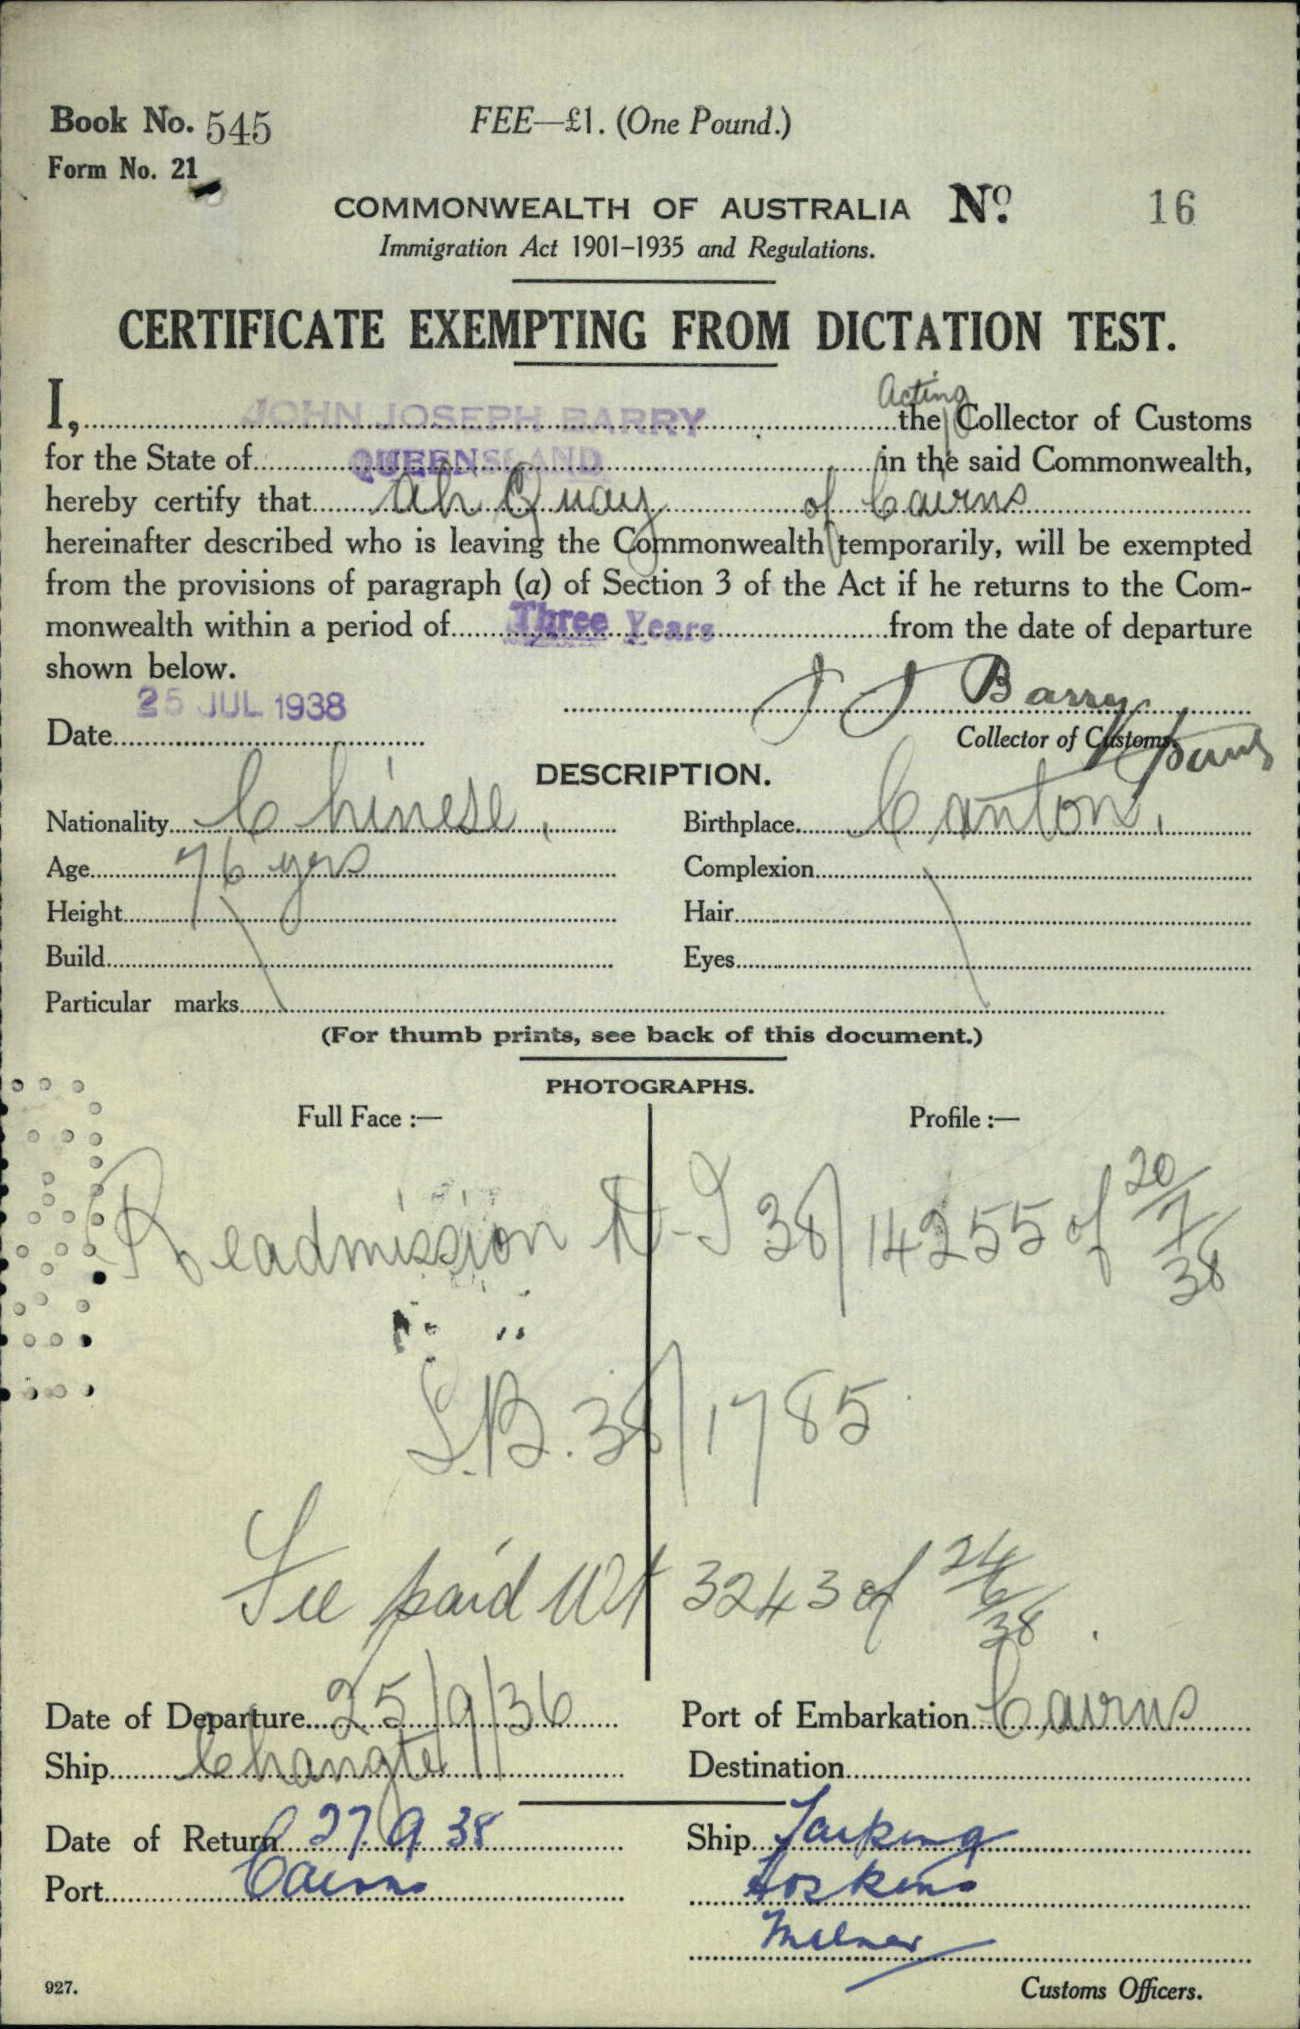 Book No. 545
FEE—£1. (One Pound.)
Form No. 21
COMMONWEALTH OF AUSTRALIA No. 16
Immigration Act 1901–1935 and Regulations.
CERTIFICATE EXEMPTING FROM DICTATION TEST.
Acting
I, JOHN JOSEPH BARRY the Collector of Customs
for the State of QUEENSLAND in the said Commonwealth,
hereby certify that Ah Quay of Cairns
hereinafter described who is leaving the Commonwealth temporarily, will be exempted
from the provisions of paragraph (a) of Section 3 of the Act if he returns to the Com-
monwealth within a period of Three Years from the date of departure
shown below.
25 JUL 1938
J J Barry
Date
Collector of Customs.
DESCRIPTION.
Nationality Chinese, Birthplace Canton,
Age 76 yrs Complexion
Height Hair
Build Eyes
Particular marks
(For thumb prints, see back of this document.)
PHOTOGRAPHS.
Full Face :— Profile :—
Readmission N-T 38/14255 of 20/7/38
S.B. 38/1785
Fee paid 3243 of 24/6/38
Date of Departure 25/9/36 Port of Embarkation Cairns
Ship Changte Destination
Date of Return 27.9.38 Ship Taiping
Port Cairns Hoskins
Milner
927.
Customs Officers.